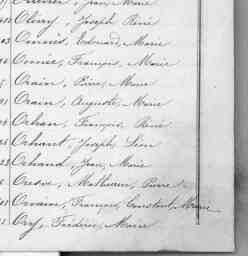 Jean, Marie
Olery, Joseph René
Onnée, Edouard, Marie
Onnée, François, Marie
Orain, Pierre, Marie
Orain, Auguste, Marie
Orhan, François, René
Orhant, Joseph, Léon
Orhand, Jean, Marie
Oresve, Mathurin, Pierre
Orvain, François, Constant, Marie
Ory, Frédéric, Marie